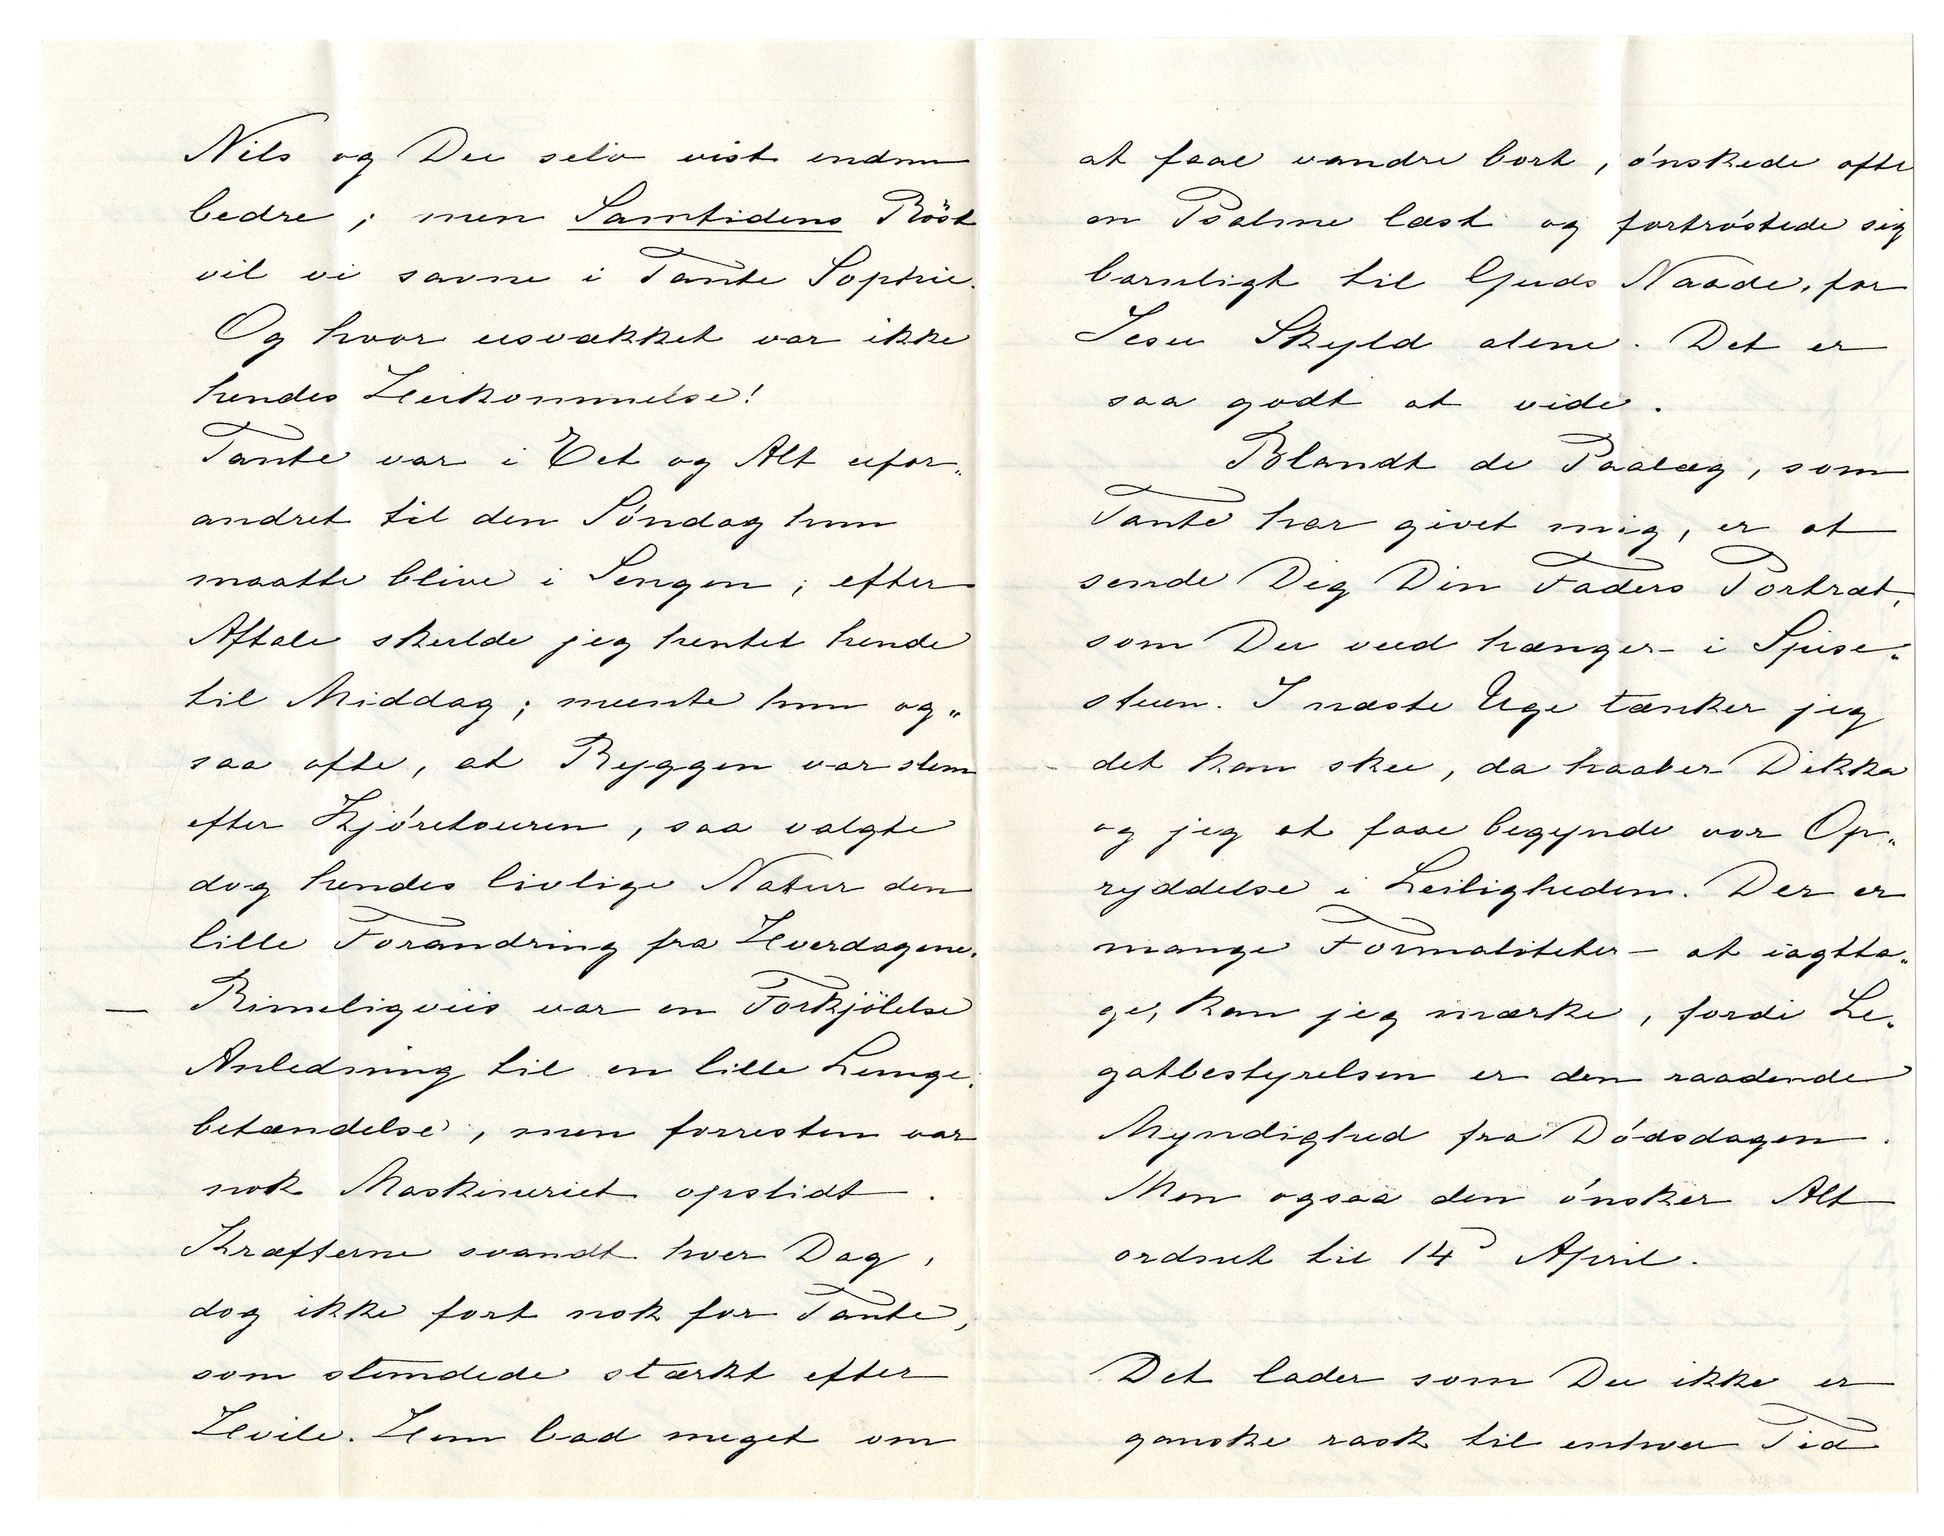 Nils og Du selv vist endnu
bedre; men Samtidens Röst
vil vi savne i Tante Sophie.
Og hvor usvækket var ikke
hendes Hukommelse!
Tante var i Eet og Alt ufor„
andret til den Söndag hun
maatte blive i Sengen; efter
Aftale skulde jeg hentet hende
til Middag; meente hun og„
saa ofte, at Ryggen var slem
efter Kjöretouren, saa valgte
dog hendes livlige Natur den
lille Forandring fra Hverdagene.
— Rimeligviis var en Forkjölelse
Anledning til en lille Lunge„
betændelse, men forresten var
nok Maskineriet opslidt.
Kræfterne svandt hver Dag,
dog ikke fort nok for Tante,
som stundede stærkt efter
Hvile. Hun bad meget om
at faae vandre bort, önskede ofte
en Psalme læst og fortröstede sig
barnligt til Guds Naade, for
Jesu Skyld alene. Det er
saa godt at vide.
Blandt de Paalæg, som
Tante har givet mig, er at
sende Dig Din Faders Portræt,
som Du veed hænger i Spise„
stuen. I næste Uge tænker jeg
det kan skee, da haaber Dikka
og jeg at faae begynde vor Op„
ryddelse i Leiligheden. Der er
mange Formaliteter at iagtta„
ge, kan jeg mærke, fordi Le„
gatbestyrelsen er den raadende
Myndighed fra Dödsdagen.
Men ogsaa den önsker Alt
ordnet til 14d April.
Det lader som Du ikke er
ganske rask til enhver Tid